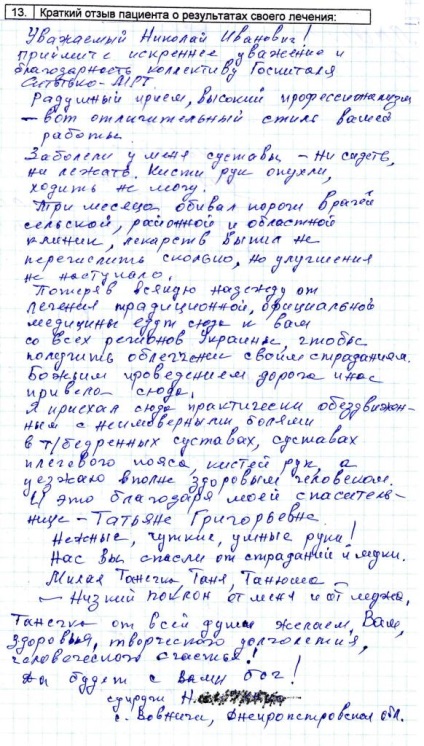 13. Краткий отзыв пациента о результатах своего лечения:
Уважаемый Николай Иванович!
Примите искреннее уважение и
благодарность коллективу Госпиталя
Ситько-МРТ
Радушный прием, высокий профессионализм
– вот отличительный стиль вашей
работы.
Заболели у меня суставы – ни сидеть,
ни лежать. Кисти рук опухли,
ходить не могу.
Три месяца обивал пороги врачей
сельской, районной и областной
клиник, лекарств выпил не
перечислить сколько, но улучшения
не наступало.
Потеряв всякую надежду от
лечения традиционной, официальной
медицины едут сюда к вам
со всех регионов Украины, чтобы
получить облегчение своим страданиям.
Божьим проведением дорога и нас
привела сюда.
Я приехал сюда практически обездвижен-
ным с неимоверными болями
в т/бедренных суставах, суставах
плечевого пояса, кистей рук, а
уезжаю вполне здоровым человеком.
И это благодаря моей спаситель-
нице – Татьяне Григорьевне.
Нежные, чуткие, умные руки!
Нас Вы спасли от страданий и муки.
Милая Танечка, Таня, Танюша –
– Низкий поклон от меня и от мужа.
Танечка от всей души желаем Вам,
здоровья, творческого долголетия,
человеческого счастья!
Да будет с вами бог!
супруги Н.
с. Вовниги, Днепропетровская обл.